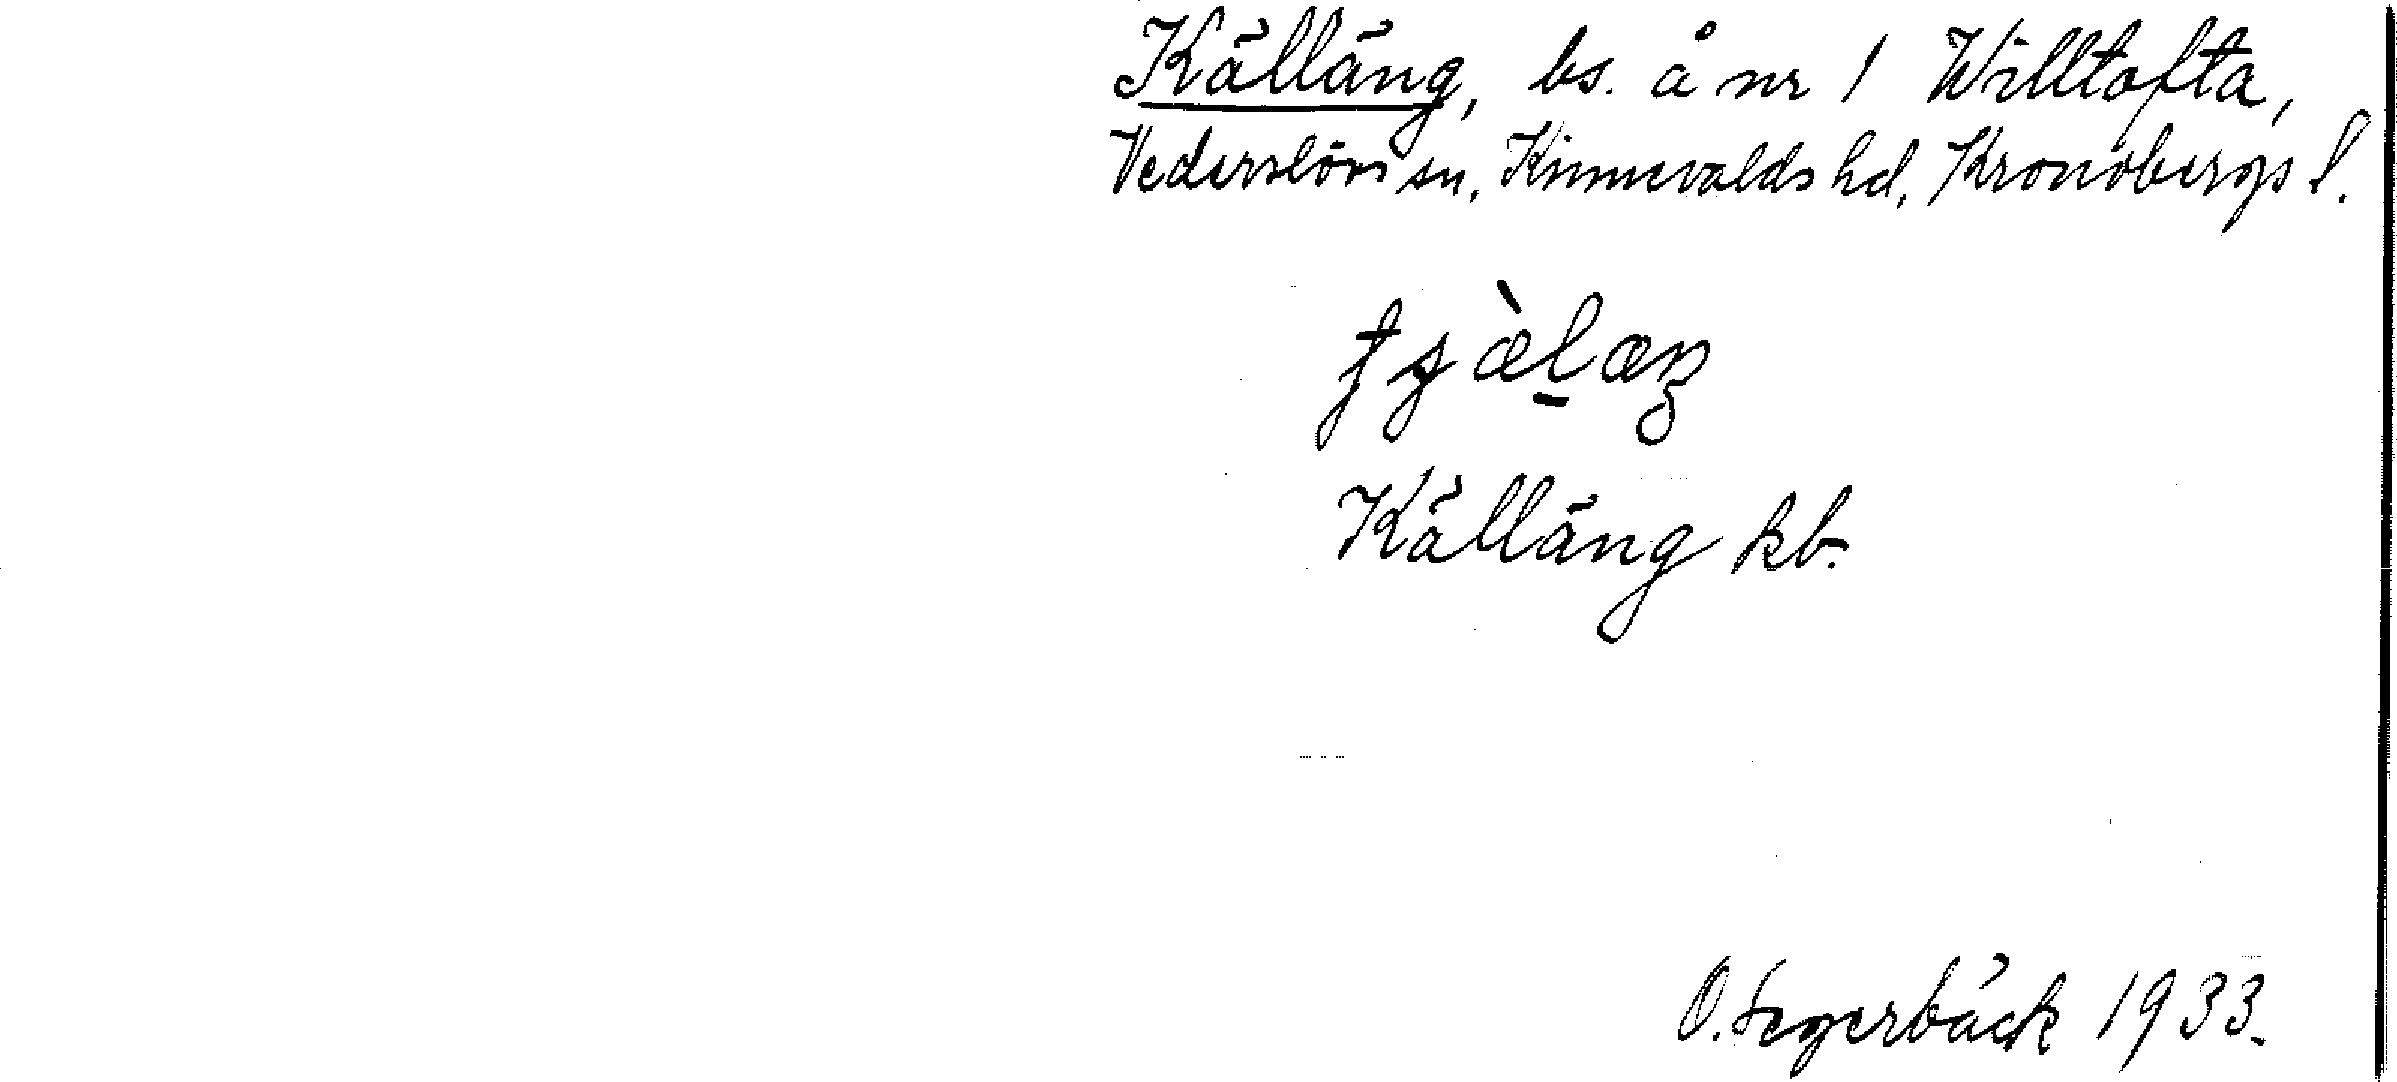 Källäng, bs. å nr 1 Willtofta,
Vederslövs sn, Kinnevalds hd, Kronobergs l.
Källäng kb.
O. Segerbäck 1933.